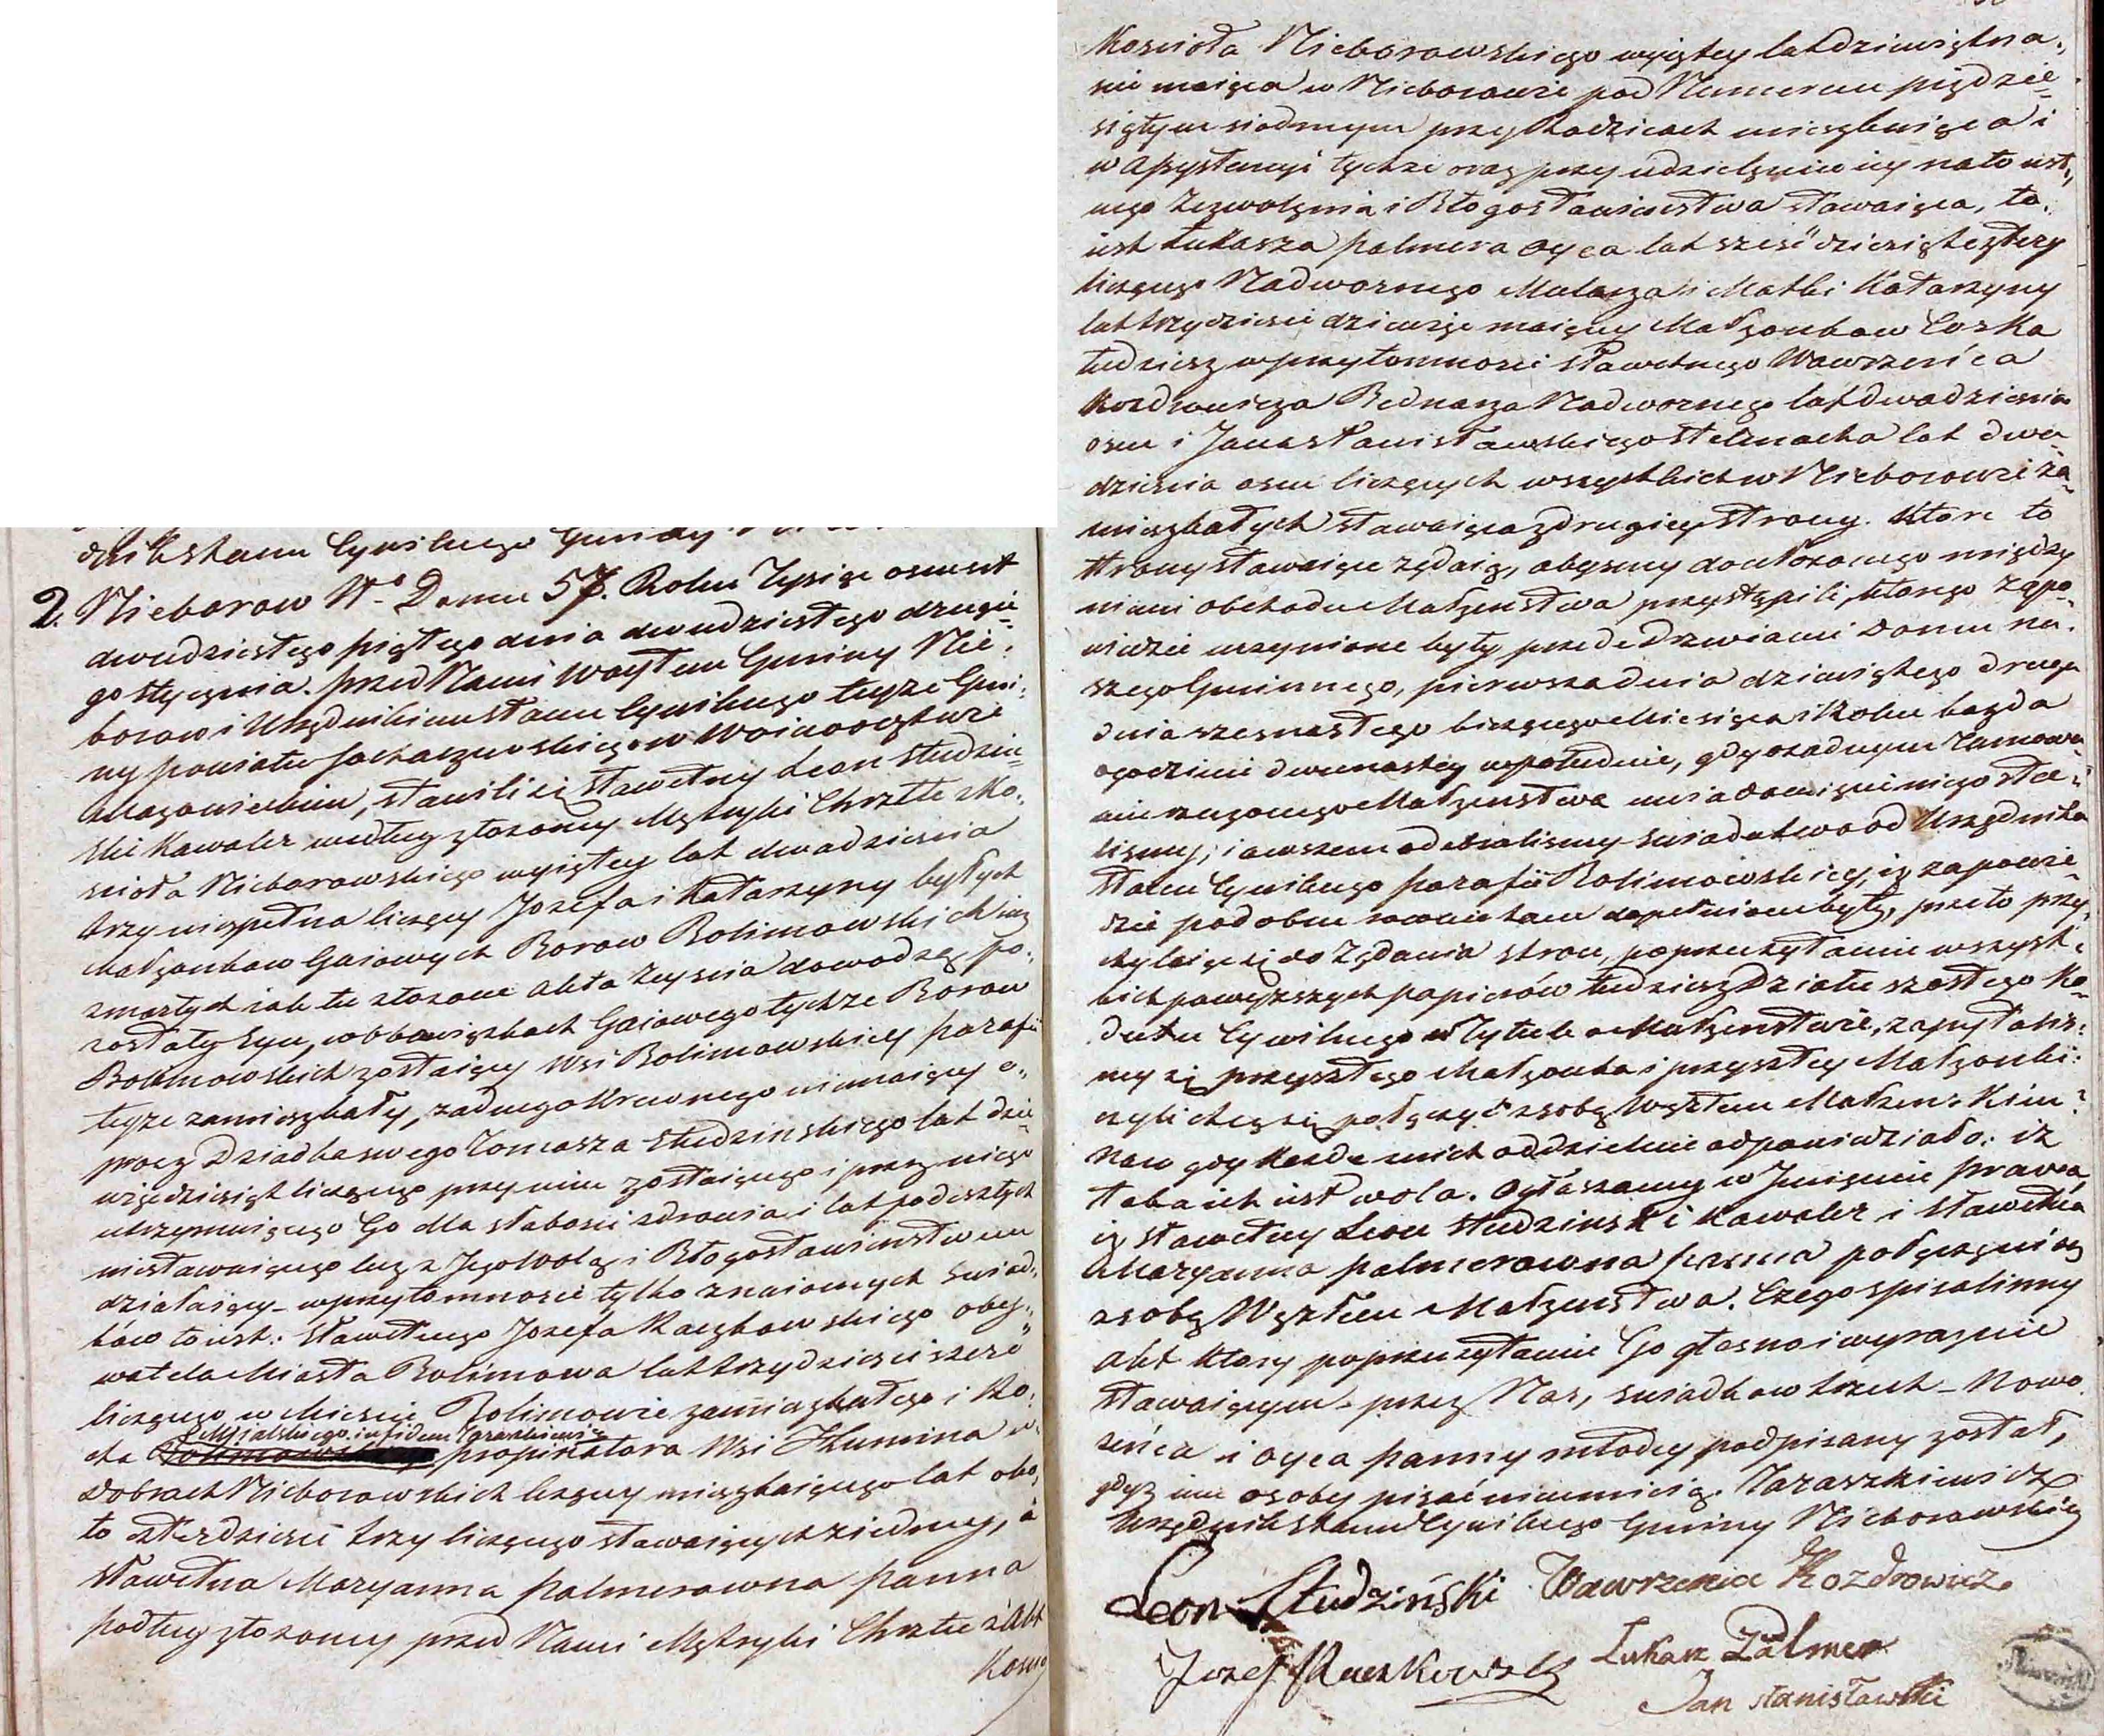 dnik stanu Cywilnego Gminy
2. Nieborow N.o Domu 57. Roku Tysiąc osmset
dwudziestego piątego dnia dwudziestego drugie
go stycznia. przed Nami Woytem Gminy Nie,
borow i Urzędnikiem stanu Cywilnego teyze Gmi,
ny powiatu Sochaczewskiego w Woiewodztwie
Mazowieckim, stawili się sławetny Leon Studzin=
ski Kawaler według złozoney Metryki Chrztu z Ko,
scioła Nieborowskiego wyiętey lat dwadziescia
trzy niezpełna liczący Jozefa i Katarzyny byłych
Małzonkow Gaiowych Borow Bolimowskich iuz
zmarłych iak tu złozone akta zeyscia dowodzą po,
zostały syn, w obowiązkach Gaiowego tychze Borow
Bolimowskich zostaiący Wsi Bolimowskiey parafii
teyze zamieszkały, zadnego Krewnego niemaiący o,,
procz Dziadka swego Tomasza Studzinskiego lat dzie=
więdziesiąt liczącego przy nim zostaiącego i przez niego
utrzymuiącego Go dla słabosci zdrowia i lat podeszłych
niestawaiącego lecz z Jego Wolą i Błogosławienstwem
działaiący - w przytomnosci tylko znaiomych swiad,
kow to iest: sławetnego Jozefa Raczkowskiego oby,,
watela Miasta Bolimowa lat trzydziesci szesć
liczącego w Miescie Bolimowie zamieszkałego i Ro,
cha Mysialskiego in fidem Taraszkiewicz propinatora Wsi Humina w
Dobrach Nieborowskich leżący mieszkaiącego lat oko,
ło czterdziesci trzy liczącego stawaiących z iedney, a
sławetna Maryanna Palmerowna panna
podług złozoney przed Nami Metryki Chrztu z Akt
Kosc
Koscioła Nieborowskiego wyiętey lat dziewiętna,
scie maiąca w Nieborowie pod Numerem pięćdzie=
siątym siodmym przy Rodzicach mieszkaiąca i
w assystencyi tychze oraz przy udzieleniu iey na to ust,,
nego Zezwolenia i Błogosławienstwa stawaiąca, to,
iest Łukasza Palmera Oyca lat sześćdziesiąt cztery
liczącego Nadwornego Mularza i Matki Katarzyny
lat trzydziesci dziewięć maiącey Małzonkow Corka
tudziesz w przytomnosci sławetnego Wawrzeńca
Kozdrowicza Bednarza Nadwornego lat dwadziescia
osm i Jana Stanisławskiego Stelmacha lat dwa=
dziescia osm liczących wszystkich w Nieborowie za=
mieszkałych stawaiąca z drugiey strony. Ktore to
strony stawaiące żądaią, abysmy do ułozonego między
niemi obchodu Małzenstwa przystąpili, ktorego zapo=
wiedzie uczynione były przede Drzwiami Domu na,
szego Gminnego, pierwsza dnia dziewiątego druga
dnia szesnastego bieżącego Miesiąca i Roku kazda
o godzinie dwunastey w południe, gdy o zadnym tamowa=
niu rzeczonego Małzenstwa uwiadomieni niezosta=
lismy, i owszem odebralismy swiadectwo od Urzędnika
stanu Cywilnego parafii Bolimowskiey, iz zapowie=
dzie podobne rownie tam dopełnione były, przeto przy,
chylaiąc się do żądania stron, po przeczytaniu wszyst,
kich powyższych papierów tudziesz Działu szostego Ko=
dexu Cywilnego w Tytule o Małzenstwie, zapytalis:
my się przyszłego Małzonka i przyszłey Małzonki:
czyli chcą się połączyć z sobą Węzłem Małzenskim?
Na co gdy kazde z nich oddzielnie odpowiedziało: iż
taka ich iest wola. Ogłaszamy w Jmieniu prawa,
iz sławetny Leon Studzinski Kawaler i sławetna
Maryanna Palmerowna panna połączeni są
z sobą Węzłem Małzenstwa. Czego spisalismy
Akt ktory po przeczytaniu Go głosno i wyraznie
stawaiącym - przez Nas, swiadkow trzech - Nowo
zeńca i oyca panny młodey podpisany został,
gdyz inne osoby pisać nieumieią. Taraszkiewicz
Urzędnik stanu Cywilnego Gminy Nieborowskiey
Leon Studziński Wawrzeniec Kozdrowicz
Jozef Raczkowski Łukasz Palmer
Jan Stanisławski